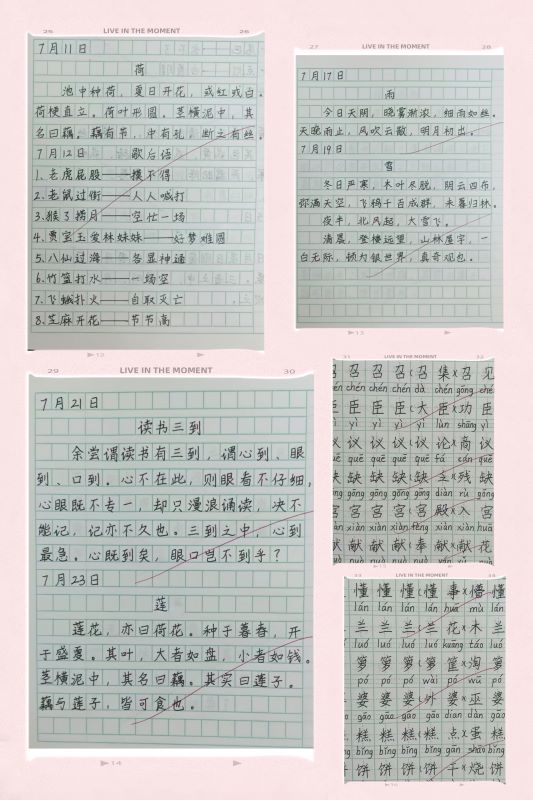 25 LIVE IN THE MOMENT 26
7月11日
荷
池中种荷，夏日开花，或红或白。
荷梗直立。荷叶形圆。茎横泥中，其
名曰藕。藕有节，中有孔，断之有丝。
7月12日 歇后语
1、老虎屁股——摸不得
2、老鼠过街——人人喊打
3、猴子捞月——空忙一场
4、贾宝玉爱林妹妹——好梦难圆
5、八仙过海——各显神通
6、竹篮打水——一场空
7、飞蛾扑火——自取灭亡
8、芝麻开花——节节高
12
27 LIVE IN THE MOMENT 28
7月17日
雨
今日天阴，晓雾渐浓，细雨如丝。
天晚雨止，风吹云散，明月初出。
7月19日
雪
冬日严寒，木叶尽脱，阴云四布，
弥满天空，飞鸦千百成群，未暮归林。
夜半，北风起，大雪飞。
清晨，登楼远望，山林屋宇，一
白无际，顿为银世界，真奇观也。
13
29 LIVE IN THE MOMENT 30
7月21日
读书三到
余尝谓读书有三到，谓心到、眼
到、口到。心不在此，则眼看不仔细，
心眼既不专一，却只漫浪诵读，决不
能记，记亦不久也。三到之中，心到
最急。心既到矣，眼口岂不到乎？
7月23日
莲
莲花，亦曰荷花。种于暮春，开
于盛夏。其叶，大者如盘，小者如钱。
茎横泥中，其名曰藕。其实曰莲子。
藕与莲子，皆可食也。
14
31 LIVE IN THE MOMENT 32
召 召 召(召 集×召 见
chén chén chén dà chén gōng ché
臣 臣 臣(大 臣×功 臣
yì yì yì yì lùn shāng yì
议 议 议(议 论×商 议
quē quē quē quē fá cán quē
缺 缺 缺(缺 乏×残 缺
gōng gōng gōng gōng diàn rù gōng
宫 宫 宫(宫 殿×入 宫
xiàn xiàn xiàn fèng xiàn xiàn huā
献 献 献(奉 献×献 花
LIVE IN THE MOMENT
懂 懂 懂(懂 事×懵 懂
lán lán lán lán huā mù lán
兰 兰 兰(兰 花×木 兰
luó luó luó luó kuāng táo luó
箩 箩 箩(箩 筐×淘 箩
pó pó pó wài pó wū pó
婆 婆 婆(外 婆×巫 婆
gāo gāo gāo gāo diǎn dàn gāo
糕 糕 糕(糕 点×蛋 糕
bǐng bǐng bǐng bǐng gān shāo bǐng
饼 饼 饼(饼 干×烧 饼